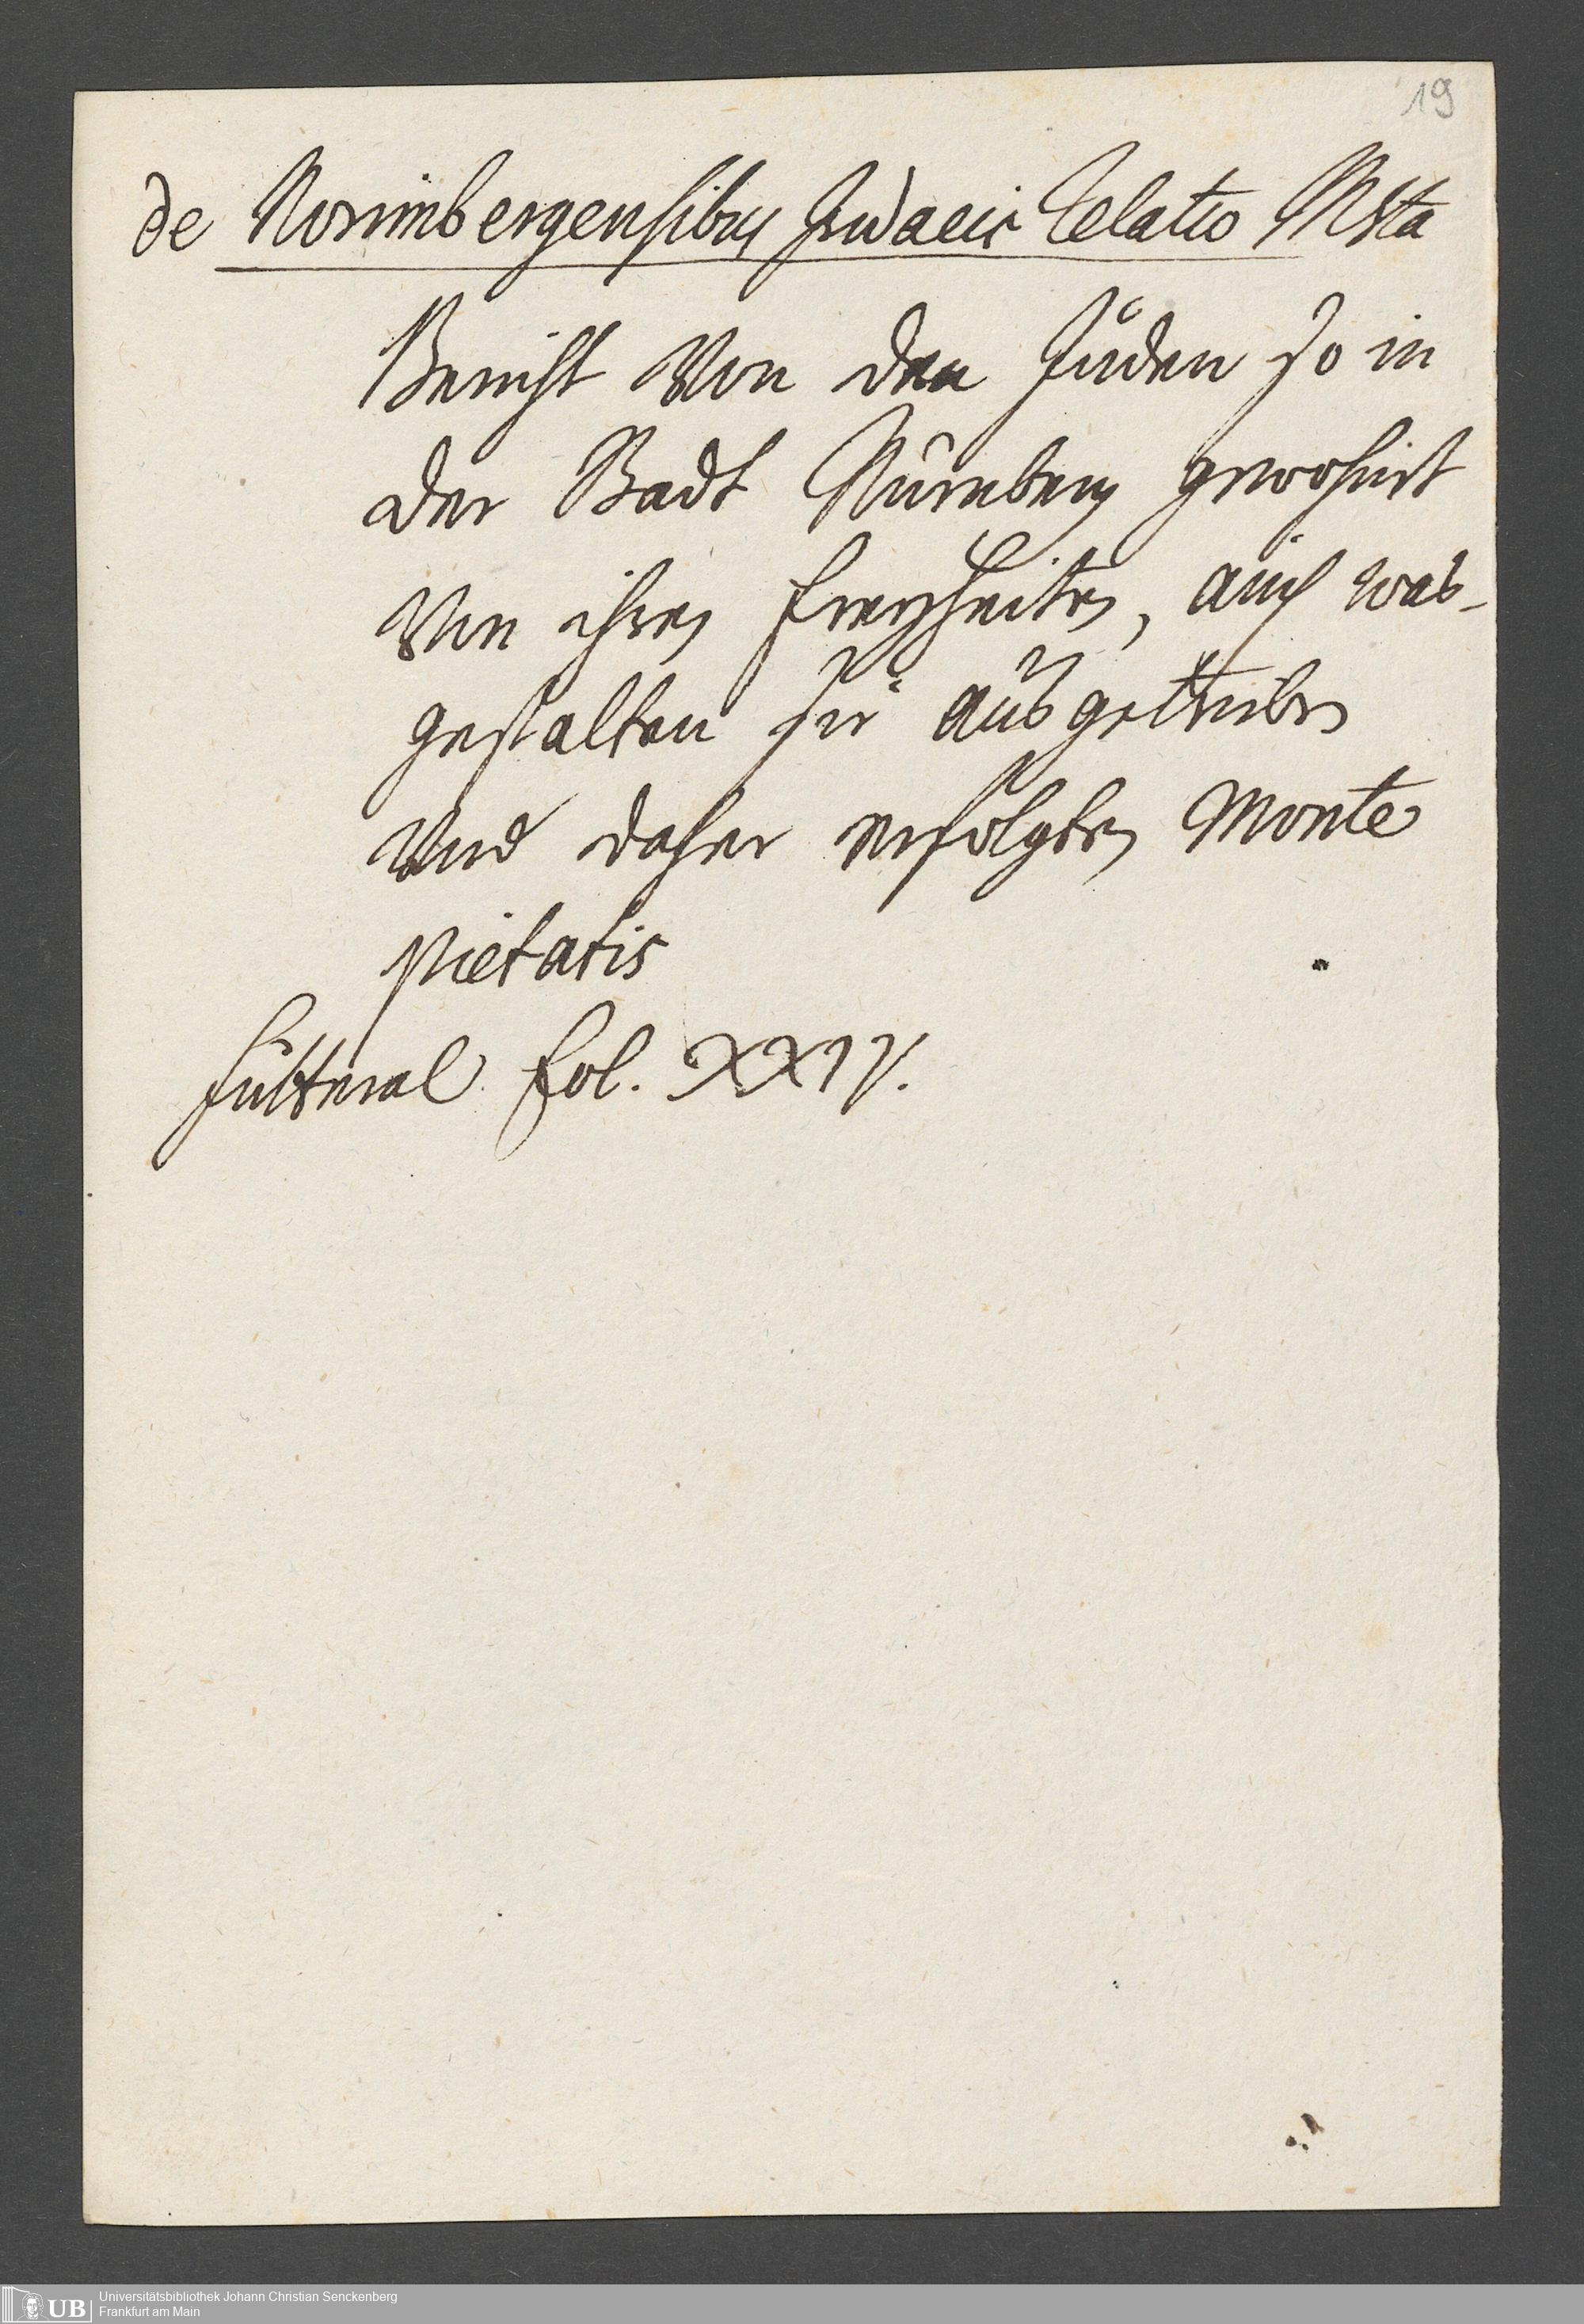 19
de Norimbergensibus Judaeis relatio Msta
Bericht Von den Juden so in
der Stadt Nürnberg gewohnt
Von ihren Freyheiten, auch was-
gestalten sie ausgetrieben
Und daher erfolgten Monte
pietatis
Futteral fol. XXIV.
UB
Universitätsbibliothek Johann Christian Senckenberg
Frankfurt am Main